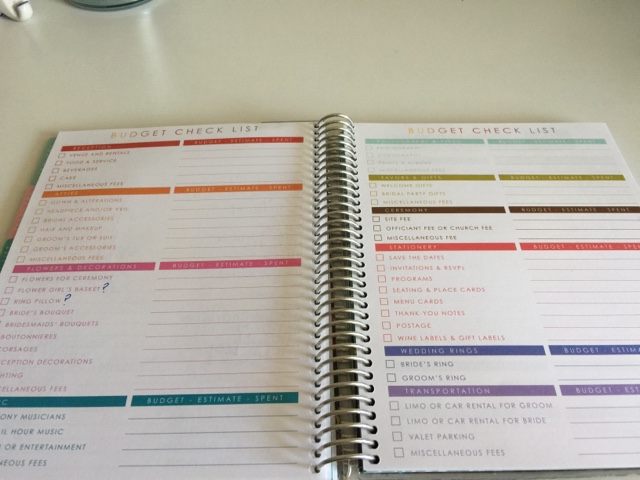 BUDGET CHECK LIST
RECEPTION BUDGET - ESTIMATE - SPENT
VENUE AND RENTALS
FOOD & SERVICE
BEVERAGES
CAKE
MISCELLANEOUS FEES
BUDGET - ESTIMATE - SPENT
GOWN & ALTERATIONS
HEADPIECE AND/OR VEIL
BRIDAL ACCESSORIES
HAIR AND MAKEUP
GROOM'S TUX OR SUIT
GROOM'S ACCESSORIES
MISCELLANEOUS FEES
FLOWERS & DECORATIONS BUDGET - ESTIMATE - SPENT
FLOWERS FOR CEREMONY
FLOWER GIRL'S BASKET ?
RING PILLOW ?
BRIDE'S BOUQUET
BRIDESMAIDS' BOUQUETS
BOUTONNIERES
CORSAGES
CEPTION DECORATIONS
HTING
CELLANEOUS FEES
IC BUDGET - ESTIMATE - SPENT
ONY MUSICIANS
IL HOUR MUSIC
OR ENTERTAINMENT
NEOUS FEES
BUDGET CHECK LIST
BUDGET - ESTIMATE - SPENT
FAVORS & GIFTS BUDGET - ESTIMATE - SPENT
WELCOME GIFTS
BRIDAL PARTY GIFTS
MISCELLANEOUS FEES
CEREMONY BUDGET - ESTIMATE - SPENT
SITE FEE
OFFICIANT FEE OR CHURCH FEE
MISCELLANEOUS FEE
STATIONERY BUDGET - ESTIMATE - SPENT
SAVE THE DATES
INVITATIONS & RSVPs
PROGRAMS
SEATING & PLACE CARDS
MENU CARDS
THANK-YOU NOTES
POSTAGE
WINE LABELS & GIFT LABELS
WEDDING RINGS BUDGET - ESTIMA
BRIDE'S RING
GROOM'S RING
TRANSPORTATION BUDGET - EST
LIMO OR CAR RENTAL FOR GROOM
LIMO OR CAR RENTAL FOR BRIDE
VALET PARKING
MISCELLANEOUS FEES